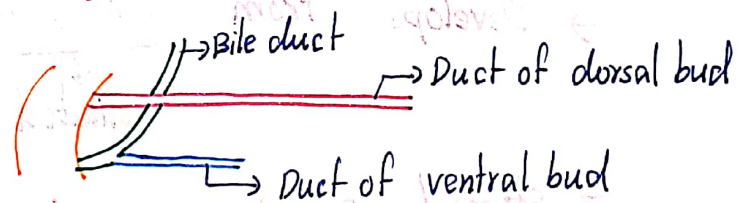 Bile duct
Duct of dorsal bud
Duct of ventral bud